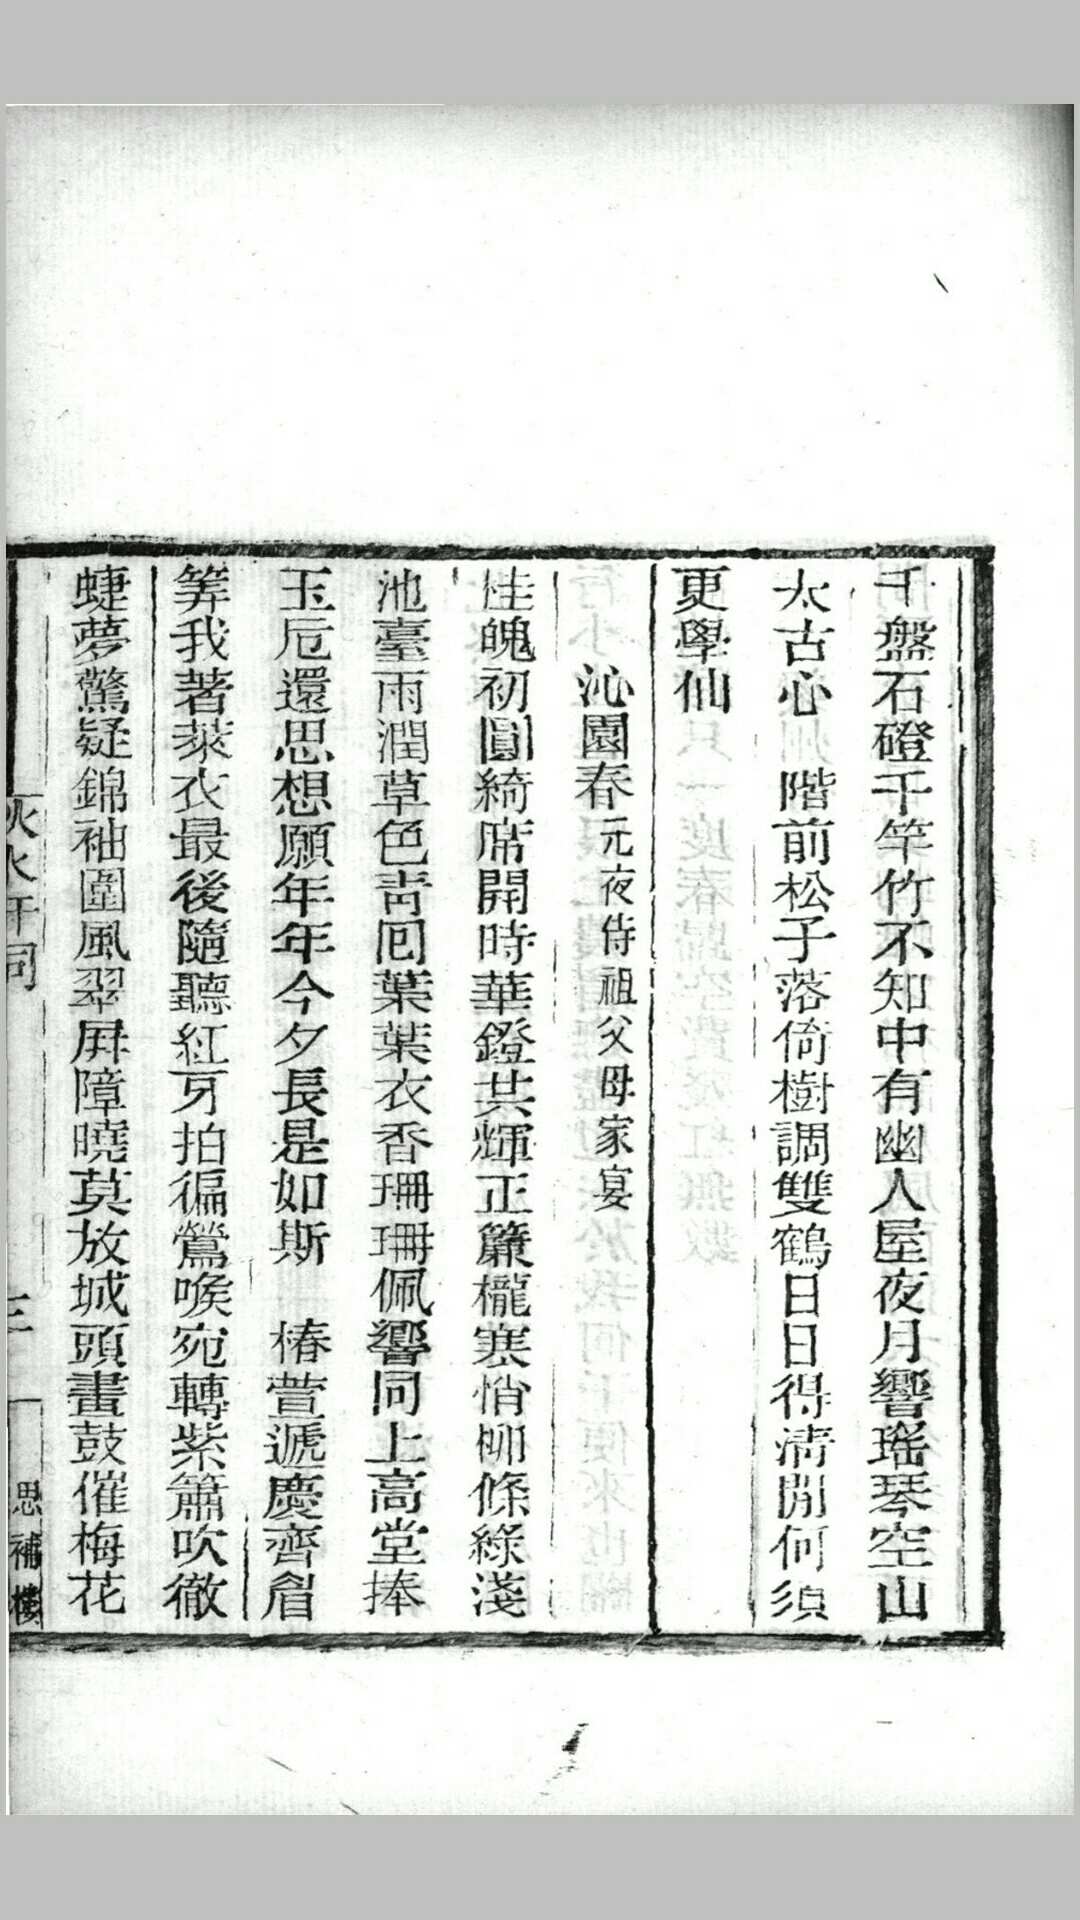 千盤石磴千竿竹不知中有幽人屋夜月響瑤琴空山
太古心　階前松子落倚樹調雙鶴日日得清閒何須
更學仙
沁園春元夜侍祖父母家宴
桂魄初圓綺席開時華鐙共輝正簾櫳寒悄柳條綠淺
池臺雨潤草色青回葉葉衣香珊珊佩響同上高堂捧
玉卮還思想願年年今夕長是如斯　椿萱遞慶齊眉
筭我著萊衣最後隨聽紅牙拍徧鶯喉宛轉紫簫吹徹
蜨夢驚疑錦袖圍風翠屏障曉莫放城頭畫鼓催梅花
三
思補樓